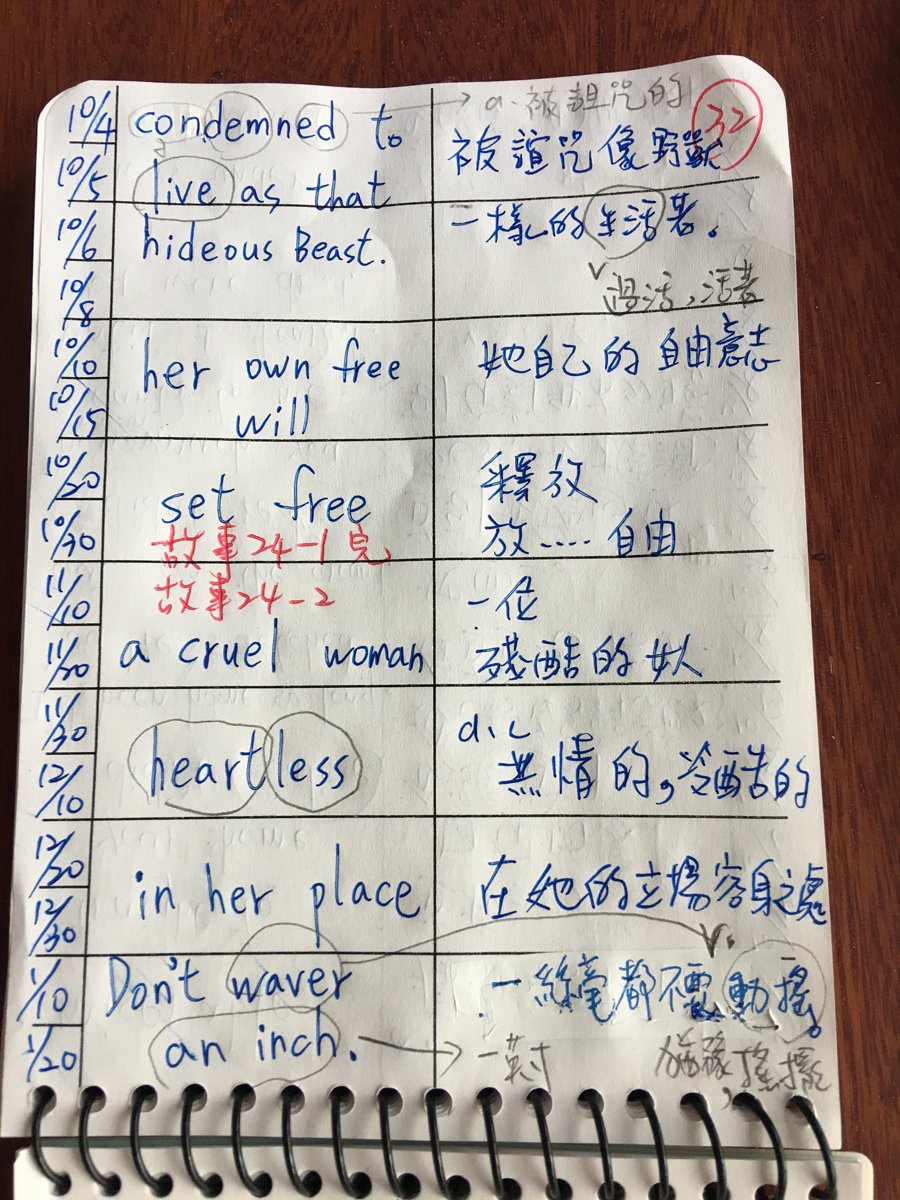 10/4 condemned to → a. 被詛咒的 32
10/5 live as that 被詛咒像野獸
10/6 hideous Beast. 一樣的生活著。
10/8 v 過活,活著
10/10 her own free 她自己的自由意志
10/15 will
10/20 set free 釋放
10/30 故事24-1完 放.....自由
11/10 故事24-2 一位
11/20 a cruel woman 殘酷的女人
11/30 heartless a.
12/10 無情的,冷酷的
12/20 in her place 在她的立場容身之處
12/30
1/10 Don't waver v. 一絲毫都不要動搖。
1/20 an inch. → 一英寸 搖擺